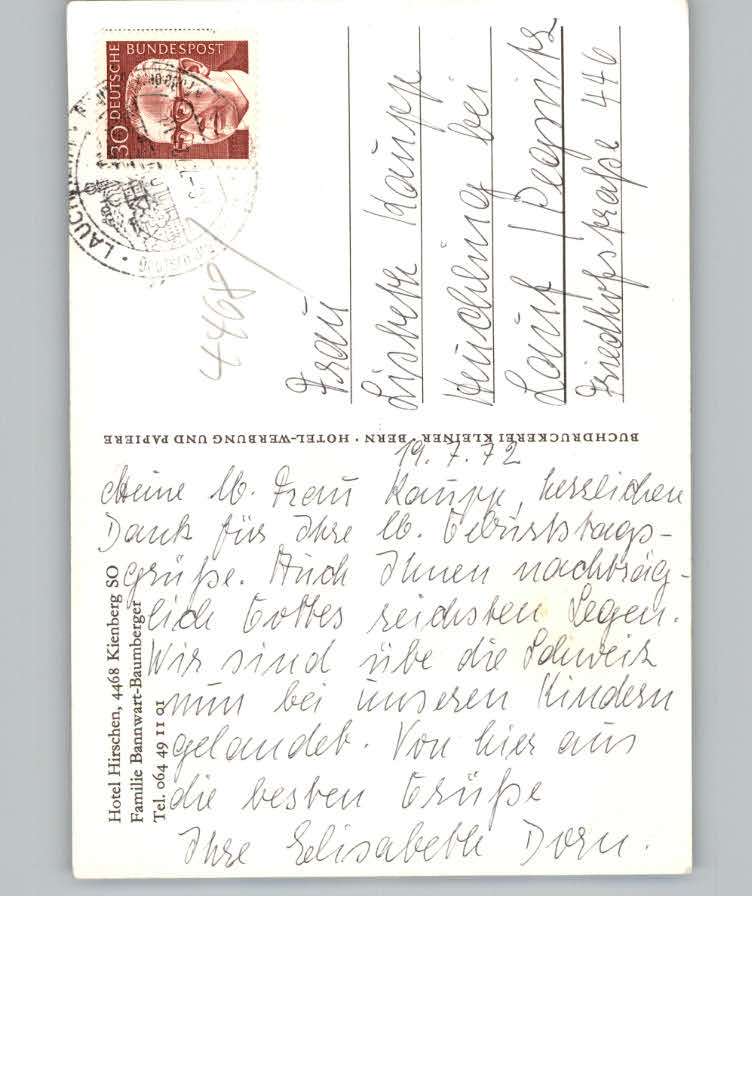 Hotel Hirschen, 4468 Kienberg SO
Familie Bannwart-Baumberger
Tel. 064 49 11 01
BUCHDRUCKEREI KLEINER · BERN · HOTEL-WERBUNG UND PAPIERE
19. 7. 72
Meine lb. Frau Kaupp, herzlichen
Dank für Ihre lb. Geburtstags-
grüße. Auch Ihnen nachträg-
lich Gottes reichsten Segen.
Wir sind übe die Schweiz
nun bei unseren Kindern
gelandet. Von hier aus
die besten Grüße
Ihre Elisabeth Dorn.
Frau
Lisbeth Kaupp
Heuchling bei
Lauf / Pegnitz
Friedhofstraße 446
4468
30 DEUTSCHE BUNDESPOST
LAUCH